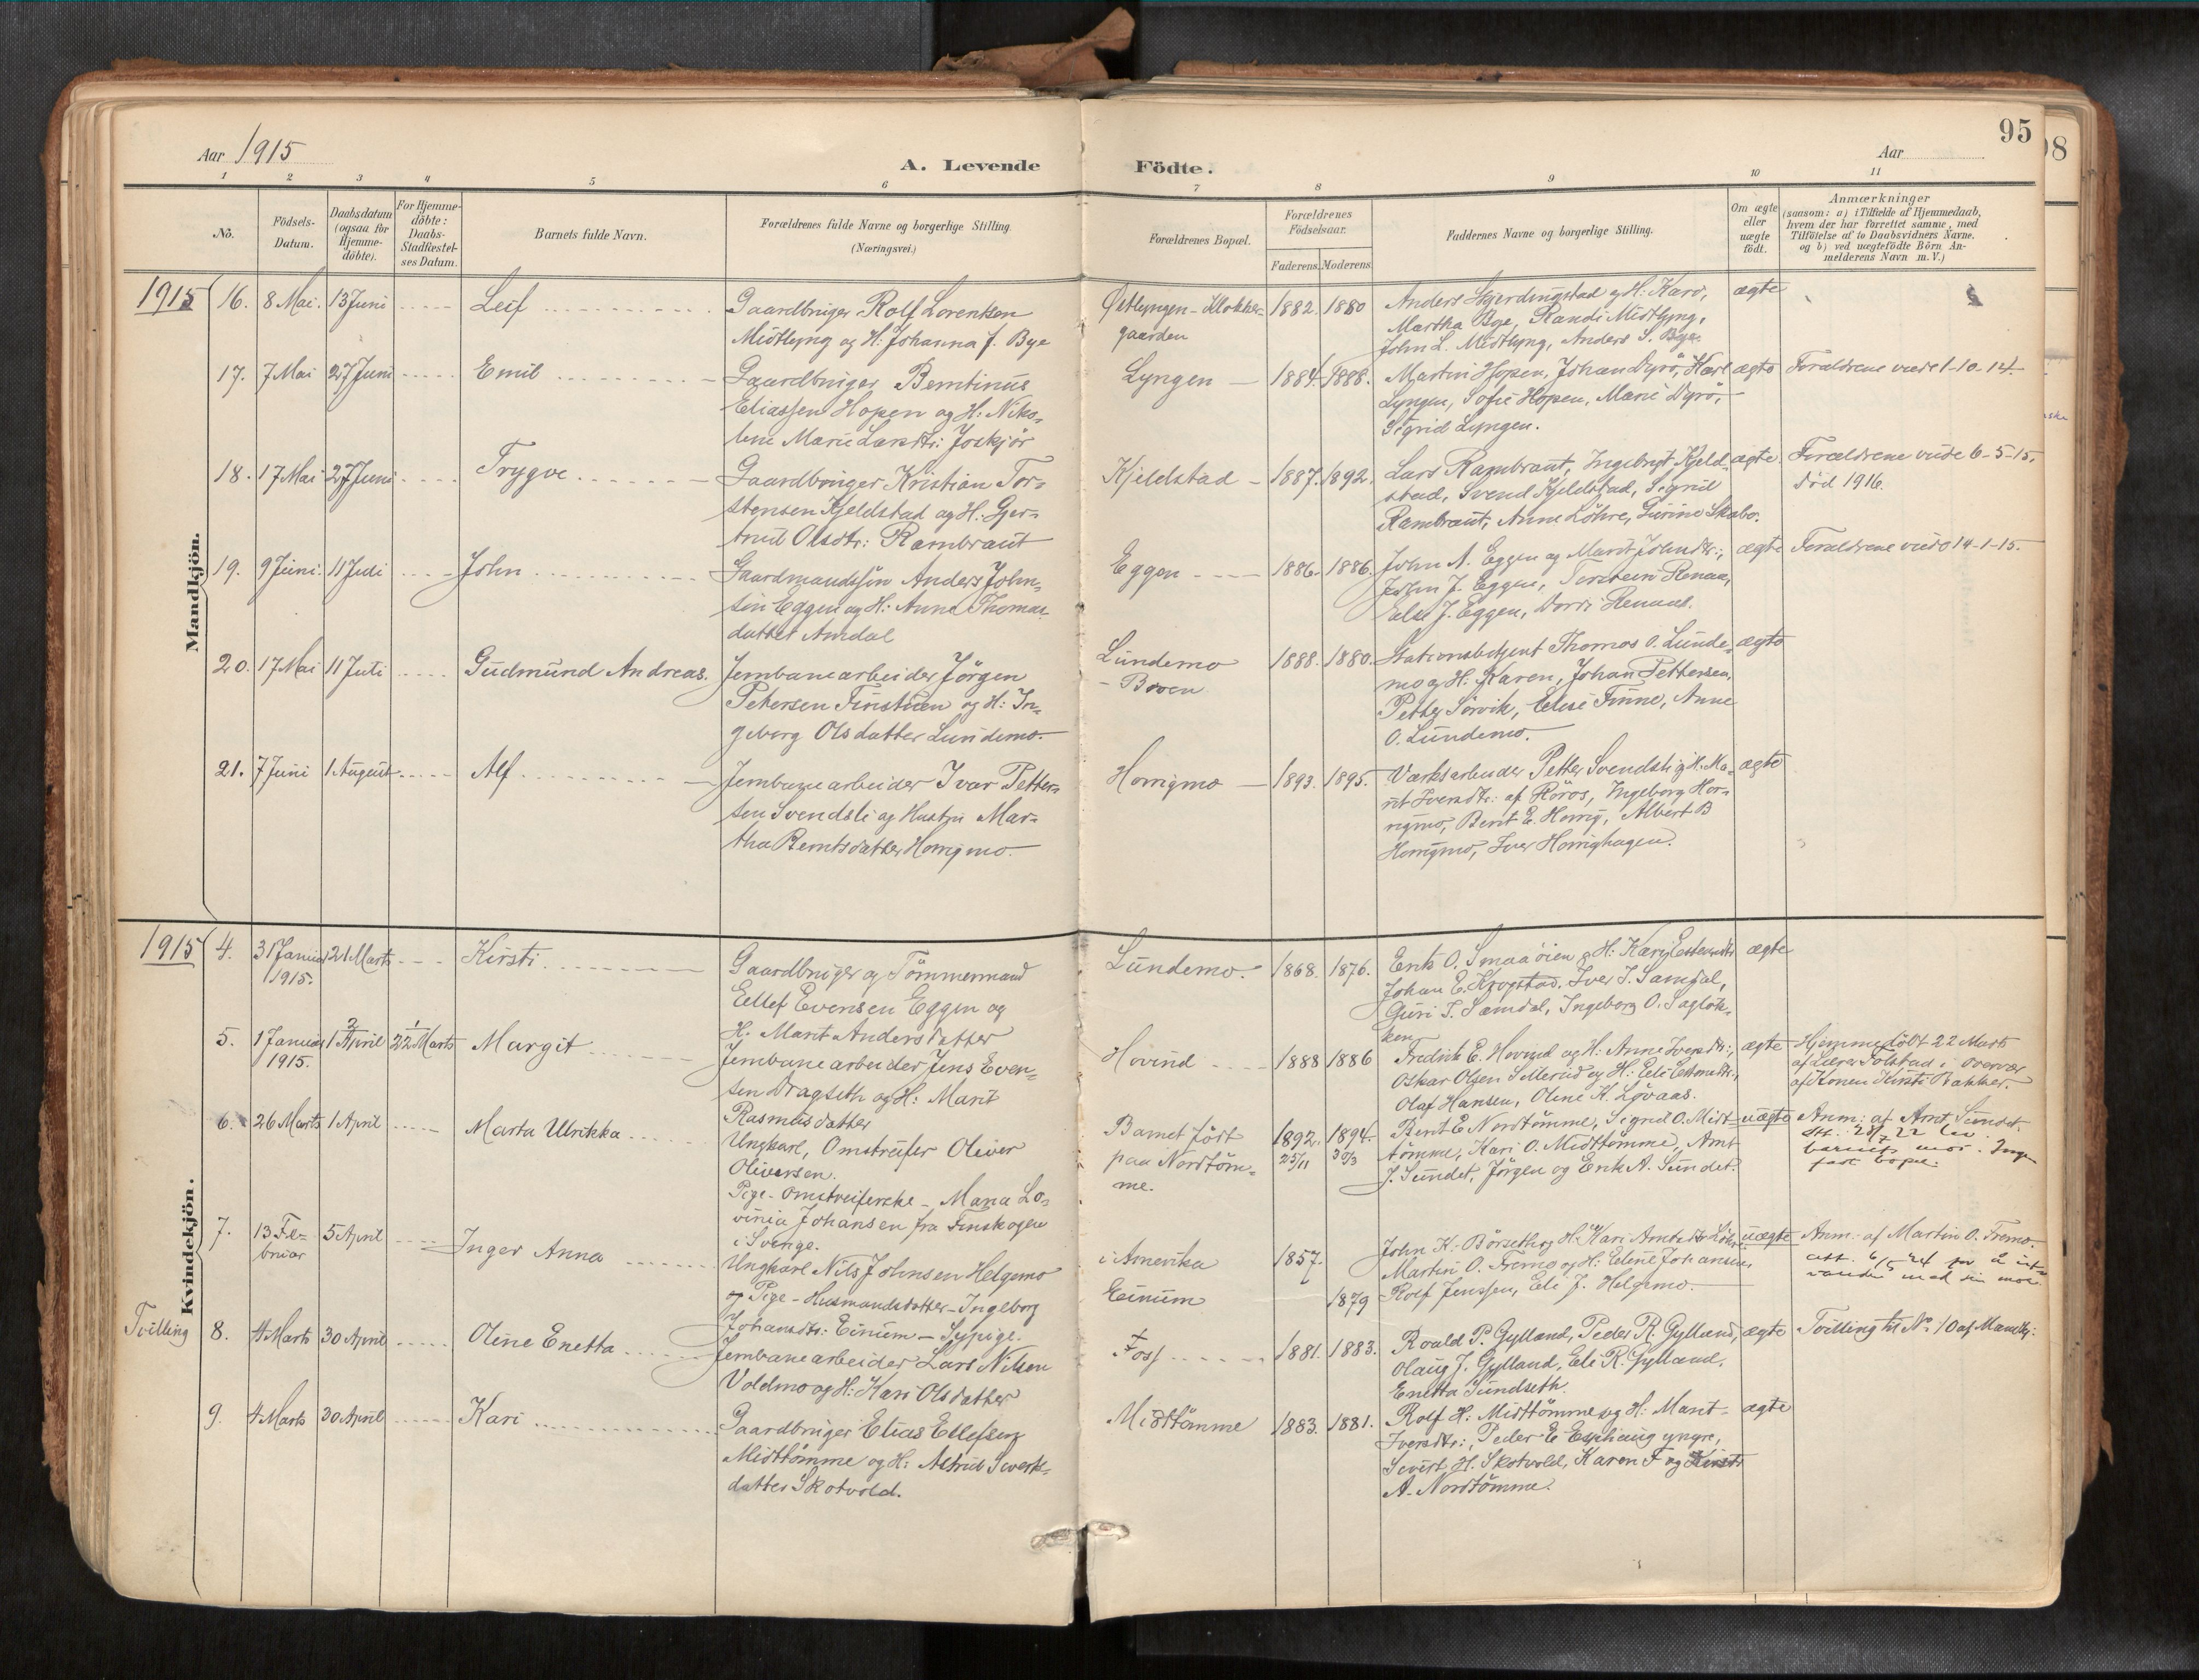 95
98
Aar 1915
A. Levende Födte.
Aar
1 2 3 4 5 6 7 8 9 10 11
No.
Födsels-
Datum.
Daabsdatum
(ogsaa for
Hjemme-
döbte).
For Hjemme-
döbte:
Daabs-
Stadfæstel-
ses Datum.
Barnets fulde Navn.
Forældrenes fulde Navne og borgerlige Stilling.
(Næringsvei.)
Forældrenes Bopæl.
Forældrenes
Födselsaar.
Faderens. Moderens.
Faddernes Navne og borgerlige Stilling.
Om ægte
eller
uægte
födt.
Anmærkninger
(saasom: a) i Tilfælde af Hjemmedaab,
hvem der har forrettet samme, med
Tilföielse af to Daabsvidners Navne,
og b) ved uægtefödte Börn An-
melderens Navn m. V.)
Mandkjön.
1915
16. 8 Mai. 13 Juni Leif
Gaardbruger Rolf Lorentsen
Midtlyng og H: Johanna J. Bye
Østlyngen - Klokker-
gaarden
1882. 1880
Anders Gjerdingstad og H: Karo,
Martha Bye, Randi Midtlyng,
John L. Midtlyng, Anders S. Bye.
ægte
17. 7 Mai 27 Juni Emil
Gaardbruger Berntinus
Eliassen Hopen og H: Niko-
line Marie Larsdtr: Joskjör
Lyngen
1884. 1888.
Martin Hopen, Johan Dyrö, Karl
Lyngen, Sofie Hopen, Marie Dyrö,
Sigrid Lyngen.
ægte
Forældrene viede 1-10-14.
18. 17 Mai 27 Juni Trygve
Gaardbruger Kristian Tor-
stensen Kjeldstad og H: Gjer-
trud Olsdtr: Rambraut
Kjeldstad
1887. 1892.
Lars Rambraut, Ingebrigt Kjeld-
stad, Svend Kjeldstad, Sigrid
Rambraut, Anne Löhre, Gurine Skabo.
ægte.
Forældrene viede 6-5-15.
Död 1916.
19. 9 Juni. 11 Juli John
Gaardmandssön Anders John-
sen Eggen og H: Anne Thomas-
datter Amdal
Eggen
1886. 1886.
John A. Eggen og Marit Johnsdtr:,
John J. Eggen, Torstein Renaa,
Else J. Eggen, Dordi Renaa.
ægte
Forældrene viede 14-1-15.
20. 17 Mai 11 Juli Gudmund Andreas.
Jernbanearbeider Jörgen
Petersen Tinstuen og H: In-
geborg Olsdatter Lundemo.
Lundemo
- Broen
1888. 1880.
Stationsbetjent Thomas O. Lunde-
mo og H: Karen, Johan Pettersen,
Petter Sörvik, Elise Finne, Anne
O. Lundemo.
ægte
21. 7 Juni 1 August Alf
Jernbanearbeider Ivar Petter-
sen Svendsli og Hustru Mar-
tha Berntsdatter Horrigmo.
Horrigmo
1893. 1895.
Værksarbeider Petter Svendsli og H: Ma-
rit Iversdtr: af Röros, Ingeborg Hor-
rigmo, Berit E. Horrig, Albert B
Horrigmo, Iver Horrighagen.
ægte
Kvindekjön.
1915
4. 31 Januar
1915.
21 Marts Kirsti
Gaardbruger og Tömmermand
Ellef Evensen Eggen og
H: Marit Andersdatter
Lundemo.
1868. 1876.
Erik O. Smaaöien og H: Kari Estensdtr
Johan E. Krogstad, Iver I. Samdal,
Guri I. Samdal, Ingeborg O. Saglök-
ken.
ægte
5. 1 Januar
1915.
1 April 22 Marts Margit
Jernbanearbeider Jens Even-
sen Dragseth og H: Marit
Rasmusdatter
Hovind
1888 1886
Fredrik E. Hovind og H: Anne Iversdtr:,
Oskar Olsen Sellerud og H: Eli Estensdtr:,
Olaf Hansen, Oline K. Lövaas.
ægte
Hjemmedöbt 22 Marts
af Lærer Folstad i Overvær
af Konen Kirsti Bakker.
6. 26 Marts 1 April Marta Ulrikka
Ungkarl, Omstreifer Oliver
Oliversen.
Pige - Omstreiferske - Maria Lo-
vinia Johansen fra Finskogen
i Sverige.
Barnet födt
paa Nordtöm-
me.
1892. 1894.
25/11 30/3
Berit E. Nordtömme, Sigrid O. Midt-
tömme, Kari O. Midttömme, Arnt
J. Sundet, Jörgen og Erik A. Sundet.
uægte
Anm: af Arnt Sundet.
att. 28/7 22
barnets mor. Ingen
fast bopel.
7. 13 Fe-
bruar
5 April Inger Anna
Ungkarl Nils Johnsen Helgemo
og Pige - Husmandsdatter - Ingeborg
Johansdtr: Einum - Sypige.
i Amerika
Einum
1857.
1879
John K. Börseth og H: Kari Arntsdtr Löhre
Martin O. Tremo og H: Eline Johansen,
Rolf Jenssen, Eli J. Helgemo.
uægte
Anm: af Martin O. Tremo.
att. 6/5 24 for å ut-
vandre med sin mor.
Tvilling
8. 4 Marts 30 April Oline Enetta
Jernbanearbeider Lars Nilsen
Voldmo og H: Kari Olsdatter
Foss
1881. 1883.
Roald P. Gylland, Peder R. Gylland,
Olaug J. Gylland, Eli R. Gylland,
Enetta Sundseth.
ægte
Tvilling til No. 10 af Mandkj:
9. 4 Marts 30 April Kari
Gaardbruger Elias Ellefsen
Midttömme og H: Astrid Siverts-
datter Skotvold.
Midttömme
1883. 1881.
Rolf H: Midttömme og H: Marit
Iversdtr:, Peder E. Esphaug yngre,
Sivert H. Skotvold, Karen F og Kirsti
A. Nordtömme.
ægte